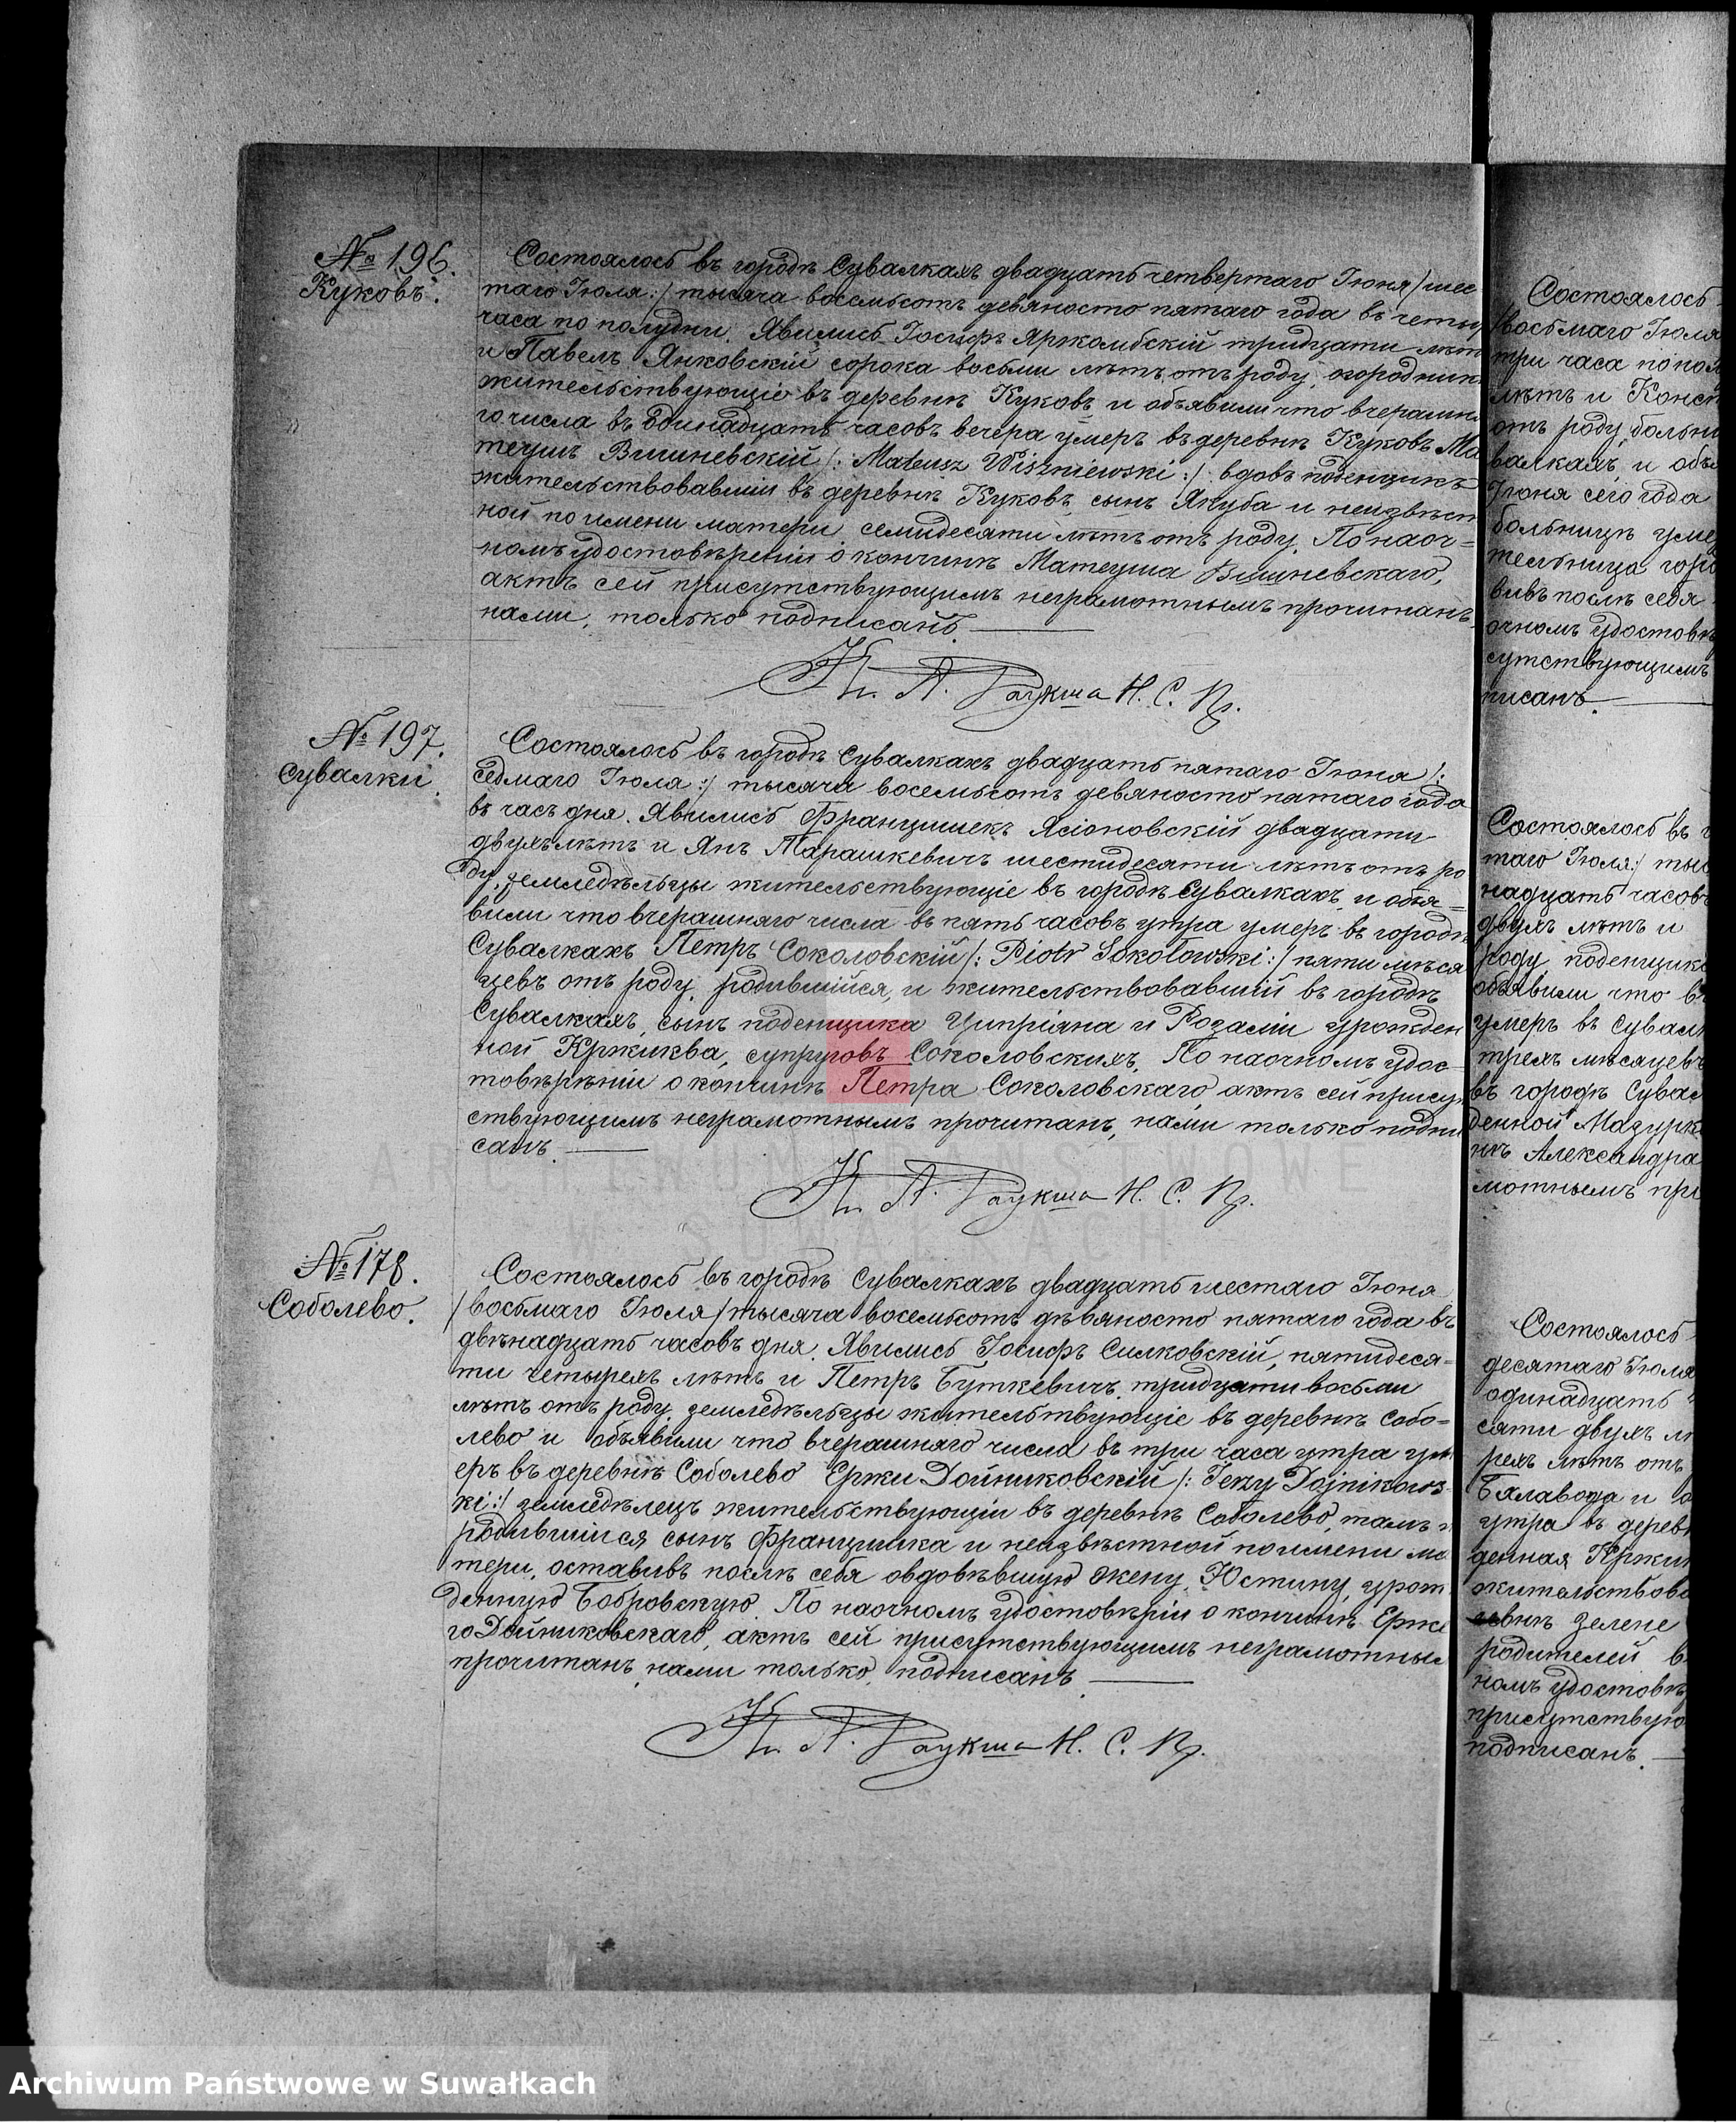 № 196.
Куковъ.
Состоялось въ городѣ Сувалкахъ двадцать четвертаго Іюня /шес
таго Іюля:/ тысяча восемьсотъ девяносто пятаго года въ четыр
часа по полудни. Явились Іосифъ Яржомбскій тридцати лѣтъ
и Павелъ Янковскій сорока восьми лѣтъ отъ роду, огородник
жительствующіе въ деревнѣ Куковъ и объявили что вчерашня
го числа въ одинадцать часовъ вечера умеръ въ деревнѣ Куковъ Ма
теушъ Вишневскій /: Mateusz Wiszniewski :/ вдовъ поденщикъ
жительствовавшій въ деревнѣ Куковъ, сынъ Якуба и неизвѣст
ной по имени матери семидесяти лѣтъ отъ роду. По наоч=
номъ удостовѣреніи о кончинѣ Матеуша Вишневскаго,
актъ сей присутствующимъ неграмотнымъ прочитанъ,
нами, только подписанъ.
Кс. А. Раукша Н. С. Пр.
№ 197.
Сувалки.
Состоялось въ городѣ Сувалкахъ двадцать пятаго Іюня /:
седмаго Іюля :/ тысяча восемьсотъ девяносто пятаго года
въ часъ дня. Явились Францишекъ Ясіоновскій двадцати
двухъ лѣтъ и Янъ Тарашкевичъ шестидесяти лѣтъ отъ ро
ду, земледѣльцы жительствующіе въ городѣ Сувалкахъ, и объя=
вили что вчерашняго числа въ пять часовъ утра умеръ въ городѣ
Сувалкахъ Петръ Соколовскій /: Piotr Sokołowski :/ пяти мѣся
цевъ отъ роду, родившійся, и жительствовавшій въ городѣ
Сувалкахъ, сынъ поденщика Ципріана и Розаліи урожден
ной Кржиква, супруговъ Соколовскихъ. По наочномъ удос=
товѣрѣніи о кончинѣ Петра Соколовскаго актъ сей присут
ствующимъ неграмотнымъ прочитанъ, нами только подпи
санъ.
Кс. А. Раукша Н. С. Пр.
№ 178.
Соболево.
Состоялось въ городѣ Сувалкахъ двадцать шестаго Іюня
/восьмаго Іюля/ тысяча восемьсотъ дѣвяносто пятаго года въ
двѣнадцать часовъ дня. Явились Іосифъ Силковскій, пятидеся=
ти четырехъ лѣтъ и Петръ Буткевичъ, тридцати восьми
лѣтъ отъ роду, земледѣльцы жительствующіе въ деревнѣ Собо=
лево и объявили что вчерашняго числа въ три часа утра ум
еръ въ деревнѣ Соболево Ержи Дойниковскій /: Jerzy Dojnikows
ki :/ земледѣлецъ жительствующій въ деревнѣ Соболево, тамъ
родившійся сынъ Францишка и неизвѣстной по имени ма
тери, оставивъ послѣ себя овдовѣвшую жену, Юстину, урож
денную Бобровскую. По наочномъ удостовѣріи о кончинѣ Ерже
го Дойниковскаго, актъ сей присутствующимъ неграмотным
прочитанъ, нами только, подписанъ.
Кс. А. Раукша Н. С. Пр.
Состоялось
/восьмаго Іюля
три часа по пол
лѣтъ и Конст
отъ роду, больни
валкахъ, и объя
Іюня сего года
больницѣ уме
тельница горо
вивъ послѣ себя
очномъ удостовѣ
сутствующимъ
писанъ.
Состоялось въ г
таго Іюля:/ тыс
надцать часовъ
двухъ лѣтъ и
роду, поденщик
объявили что в
умеръ въ Сувал
трехъ мѣсяцевъ
въ городѣ Сувал
денной Мазурк
нѣ Александра
мотнымъ при
Состоялось
десятаго Іюля
одинадцать
сяти двухъ л
рехъ лѣтъ отъ
Бялавода и о
утра въ дерев
денная Кржи
жительствова
внѣ Зелене
родителей в
номъ удостовѣ
присутствую
подписанъ.
ARCHIWUM PAŃSTWOWE
W SUWAŁKACH
Archiwum Państwowe w Suwałkach